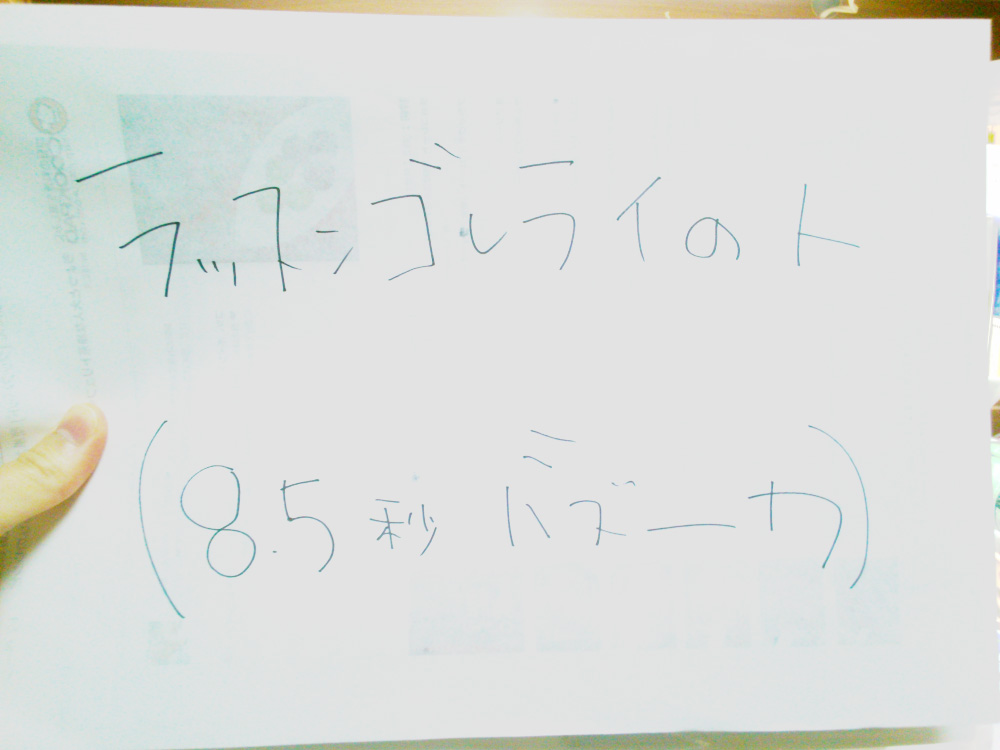 ラッスンゴレライのト
(8.5秒バズーカ)